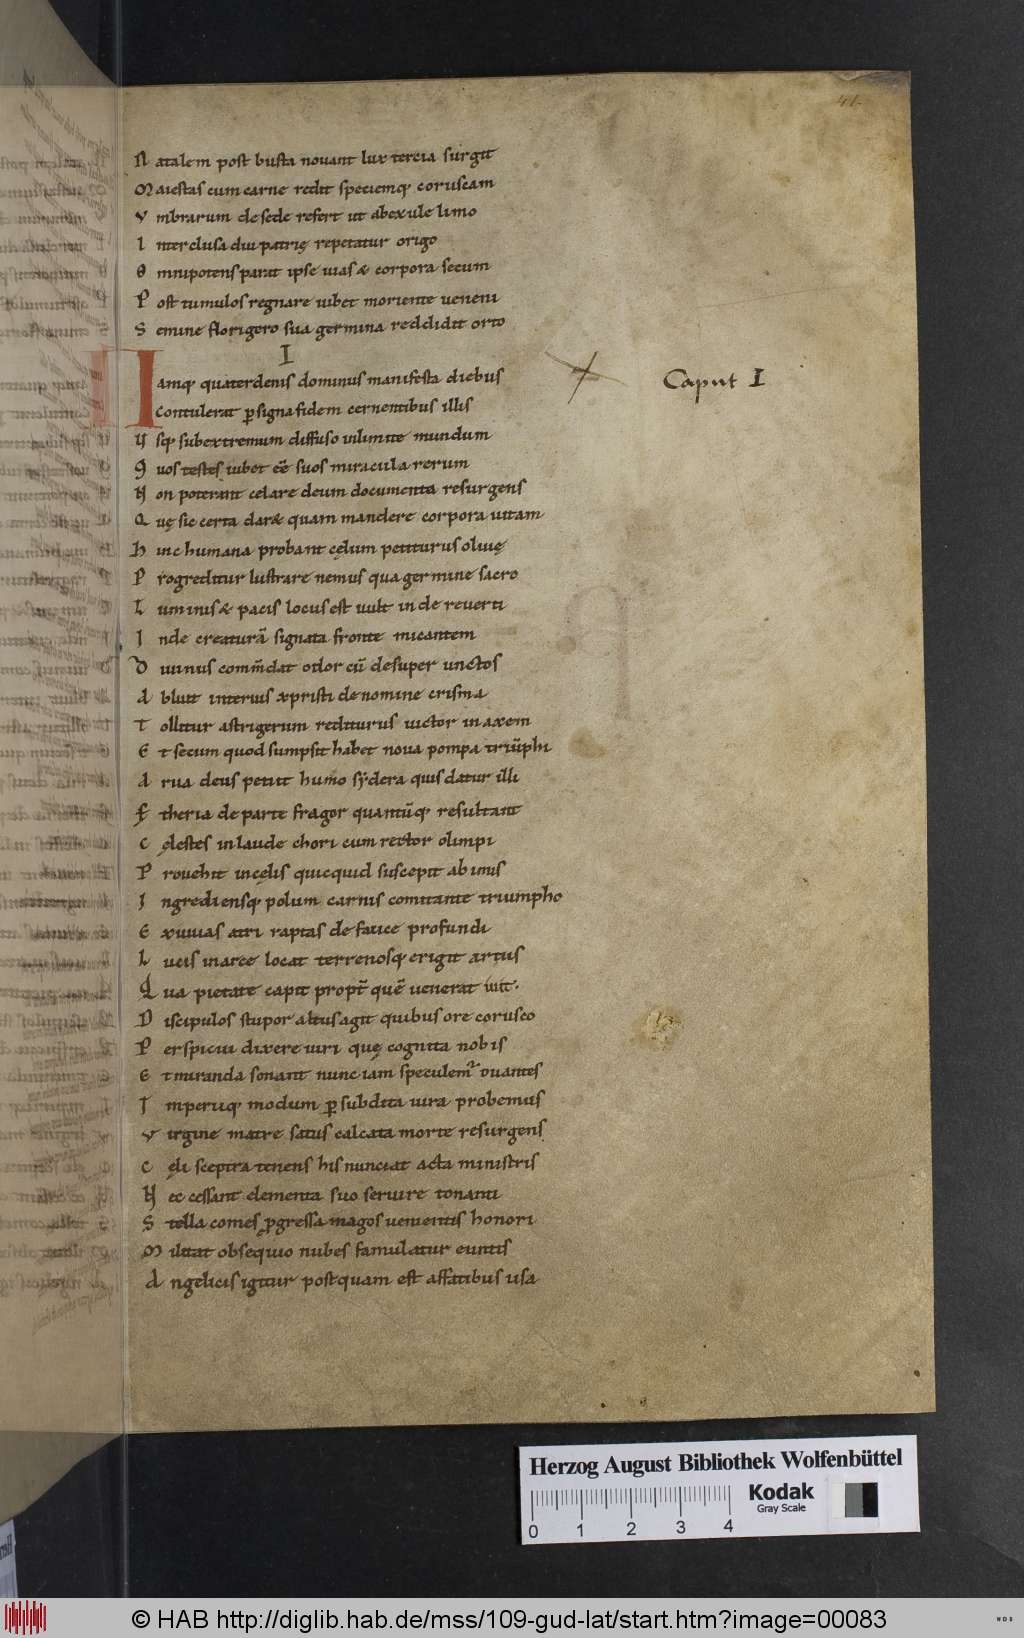 41.
N atalem post busta nouant lux tercia surgit
M aiestas cum carne redit speciemq; coruscam
V mbrarum de sede refert ut abexule limo
I nterclusa diu patrię repetatur origo
O mnipotens parat ipse uias & corpora secum
P ost tumulos regnare iubet moriente ueneni
S emine florigero sua germina reddidit orto
I
I amq; quaterdenis dominus manifesta diebus
Contulerat p signa fidem cernentibus illis
Caput I
U sq; sub extremum diffuso in limite mundum
Q uos testes iubet eē suos miracula rerum
N on poterant celare deum documenta resurgens
Q uę sic certa dar& quam mandere corpora uitam
H inc humana probant cęlum petiturus oliuę
P rogreditur lustrare nemus qua germine sacro
L uminis & pacis locus est uult inde reuerti
I nde creaturā signata fronte micantem
D iuinus com̄dat odor cū desuper unctos
A bluit interius xpristi de nomine crisma
T ollitur astrigerum rediturus uictor in axem
E t secum quod sumpsit habet noua pompa triūphi
A rua deus petiit humo sẏdera quis datur illi
Ę theria de parte fragor quantūq; resultant
C ęlestes in laude chori cum rector olimpi
P rouehit in cęlis quicquid suscepit ab imis
I ngrediensq; polum carnis comitante triumpho
E xuuias atri raptas de fauce profundi
L ucis in arce locat terrenosq; erigit artus
Q ua pietate capit propt̄ quē uenerat
D iscipulos stupor altus agit quibus ore corusco
P erspicui dixere uiri quę cognita nobis
E t miranda sonant nunc iam speculem᷑ ouantes
I mperiiq; modum p subdita iura probemus
V irgine matre satus calcata morte resurgens
C ęli sceptra tenens his nunciat acta ministris
N ec cessant elementa suo seruire tonanti
S tella comes pgressa magos uenientis honori
M ilitat obsequio nubes famulatur euntis
A ngelicis igitur postquam est affatibus usa
Herzog August Bibliothek Wolfenbüttel
Kodak
Gray Scale
0 1 2 3 4
© HAB http://diglib.hab.de/mss/109-gud-lat/start.htm?image=00083
WDB